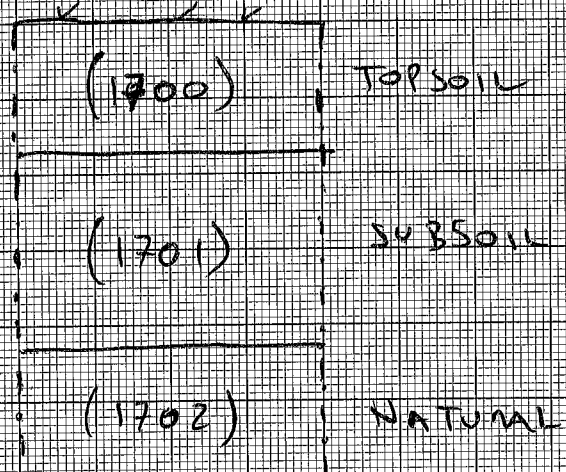 (1700) TOPSOIL
(1701) SUBSOIL
(1702) NATURAL